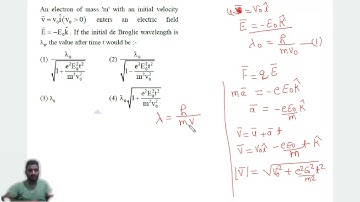 An electron of mass 'm' with an initial velocity
v⃗ = v₀î (v₀ > 0) enters an electric field
E⃗ = −E₀k̂. If the initial de Broglie wavelength is
λ₀, the value after time t would be :-
(1) λ₀ / √(1 + e²E₀²t² / m²v₀²) (2) λ₀ / √(1 − e²E₀²t² / m²v₀²)
(3) λ₀ (4) λ₀ √(1 + e²E₀²t² / m²v₀²)
λ = h / mv
v̄ = v₀ î
E̅ = −E₀ k̂
λ₀ = h / mv₀ —(1)
F̅ = q E̅
m a̅ = −eE₀ k̂
a̅ = −eE₀/m k̂
v̅ = u̅ + a̅ t
v̅ = v₀ î − eE₀/m t k̂
|v̅| = √(v₀² + e²E₀²/m² t²)